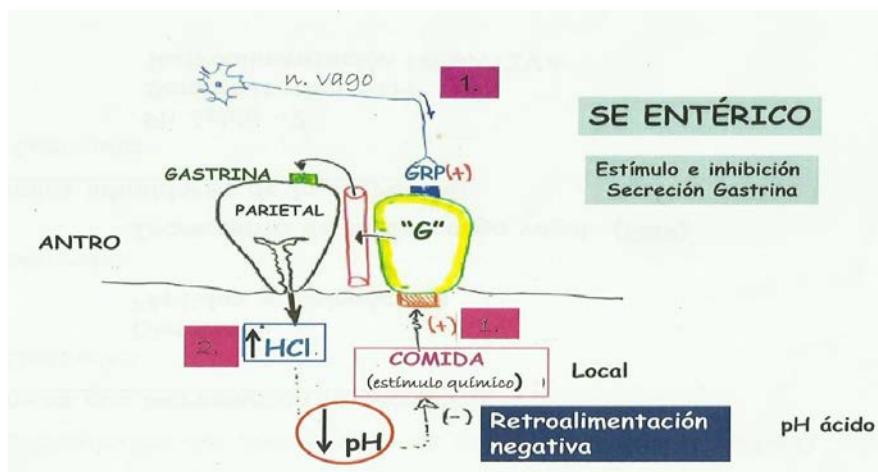 n. vago
1.
SE ENTÉRICO
Estímulo e inhibición
Secreción Gastrina
GASTRINA
GRP(+)
PARIETAL
"G"
ANTRO
2.
↑HCl
(+)
1.
COMIDA
(estímulo químico)
Local
↓ pH
(-)
Retroalimentación
negativa
pH ácido